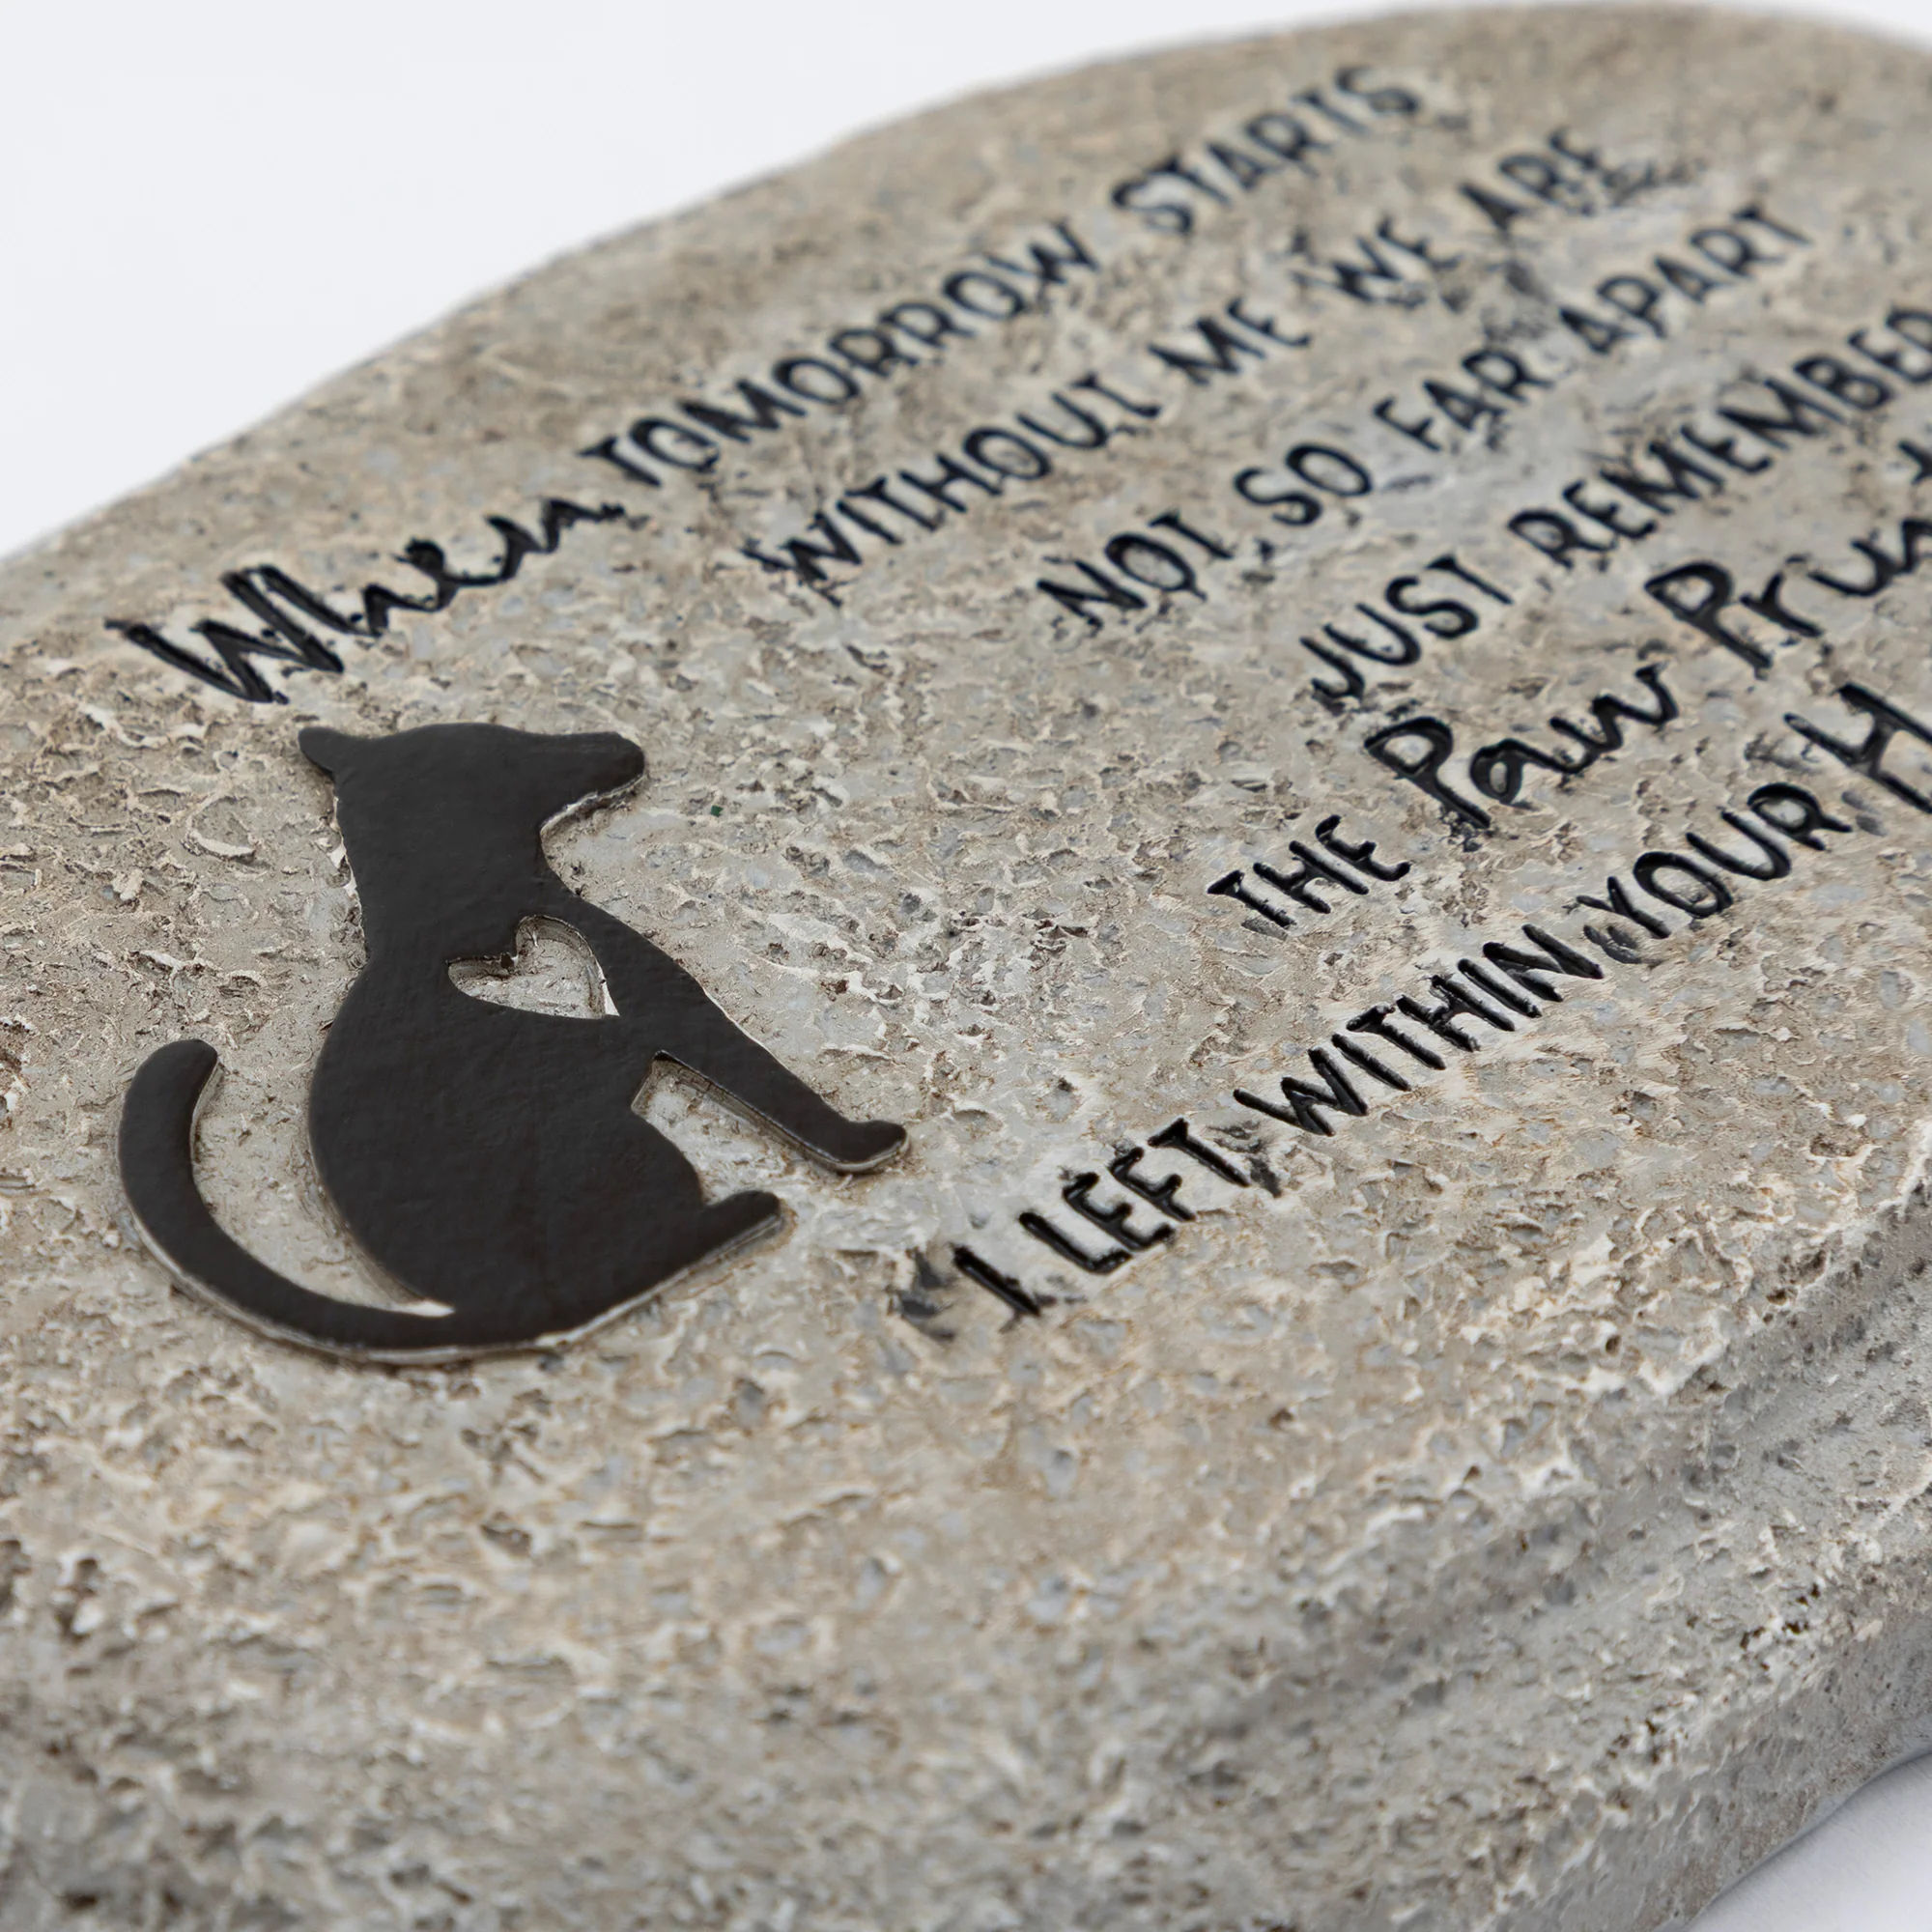 When TOMORROW STARTS
WITHOUT ME WE ARE
NOT SO FAR APART
JUST REMEMBER
THE Paw
I LEFT WITHIN YOUR